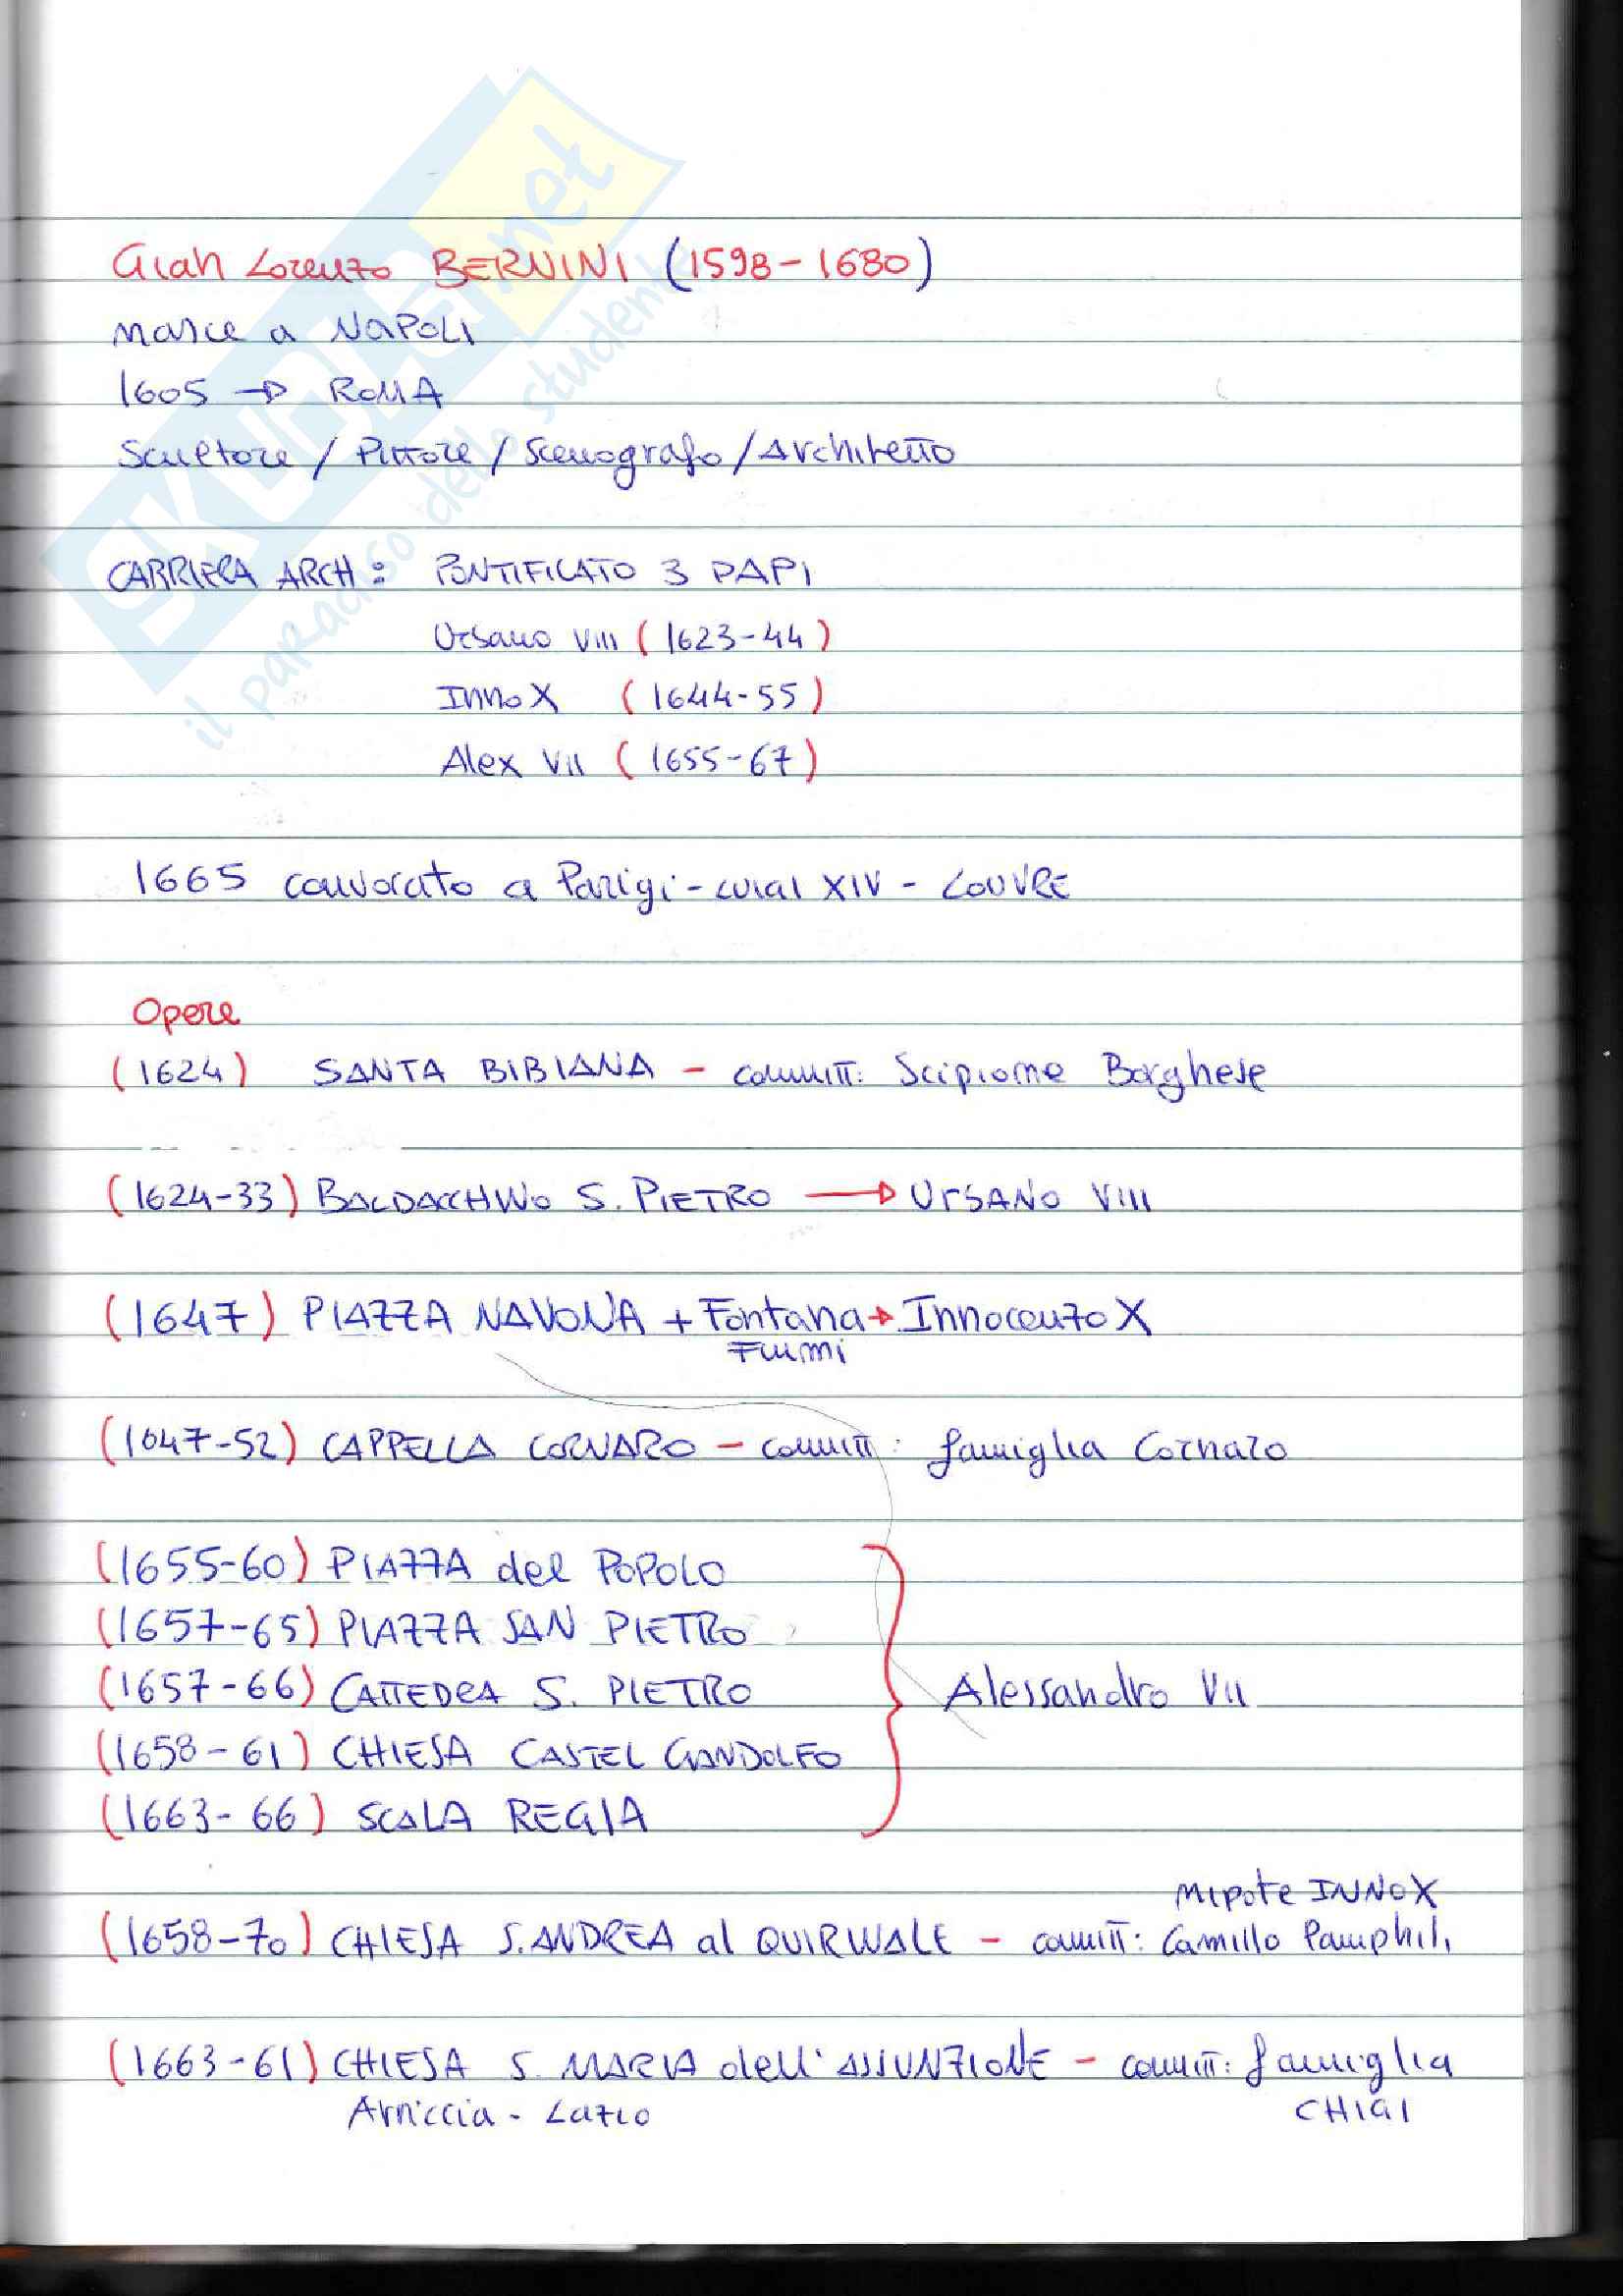 SKUOLA.net
il paradiso dello studente
Gian Lorenzo BERNINI (1598-1680)
nasce a NAPOLI
1605 → ROMA
Scultore / Pittore / Scenografo / Architetto
CARRIERA ARCH: PONTIFICATO 3 PAPI
Urbano VIII (1623-44)
Inno X (1644-55)
Alex VII (1655-67)
1665 convocato a Parigi - Luigi XIV - LOUVRE
Opere
(1624) SANTA BIBIANA - committ: Scipione Borghese
(1624-33) BALDACCHINO S. PIETRO → URBANO VIII
(1647) PIAZZA NAVONA + Fontana → Innocenzo X
Fiumi
(1647-52) CAPPELLA CORNARO - committ: famiglia Cornaro
(1655-60) PIAZZA del POPOLO
(1657-65) PIAZZA SAN PIETRO
(1657-66) CATTEDRA S. PIETRO Alessandro VII
(1658-61) CHIESA CASTEL GANDOLFO
(1663-66) SCALA REGIA
nipote INNO X
(1658-70) CHIESA S. ANDREA al QUIRINALE - committ: Camillo Pamphili
(1663-61) CHIESA S. MARIA dell'ASSUNZIONE - committ: famiglia
Arriccia - Lazio CHIGI